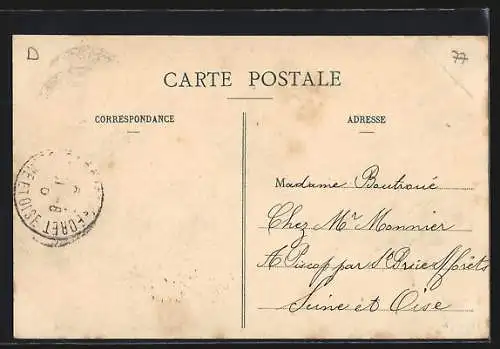 D
77
CARTE POSTALE
CORRESPONDANCE
ADRESSE
Madame Boutroué
Chez Mr Monnier
A Piscop par St Brice s/ forêts
Seine et Oise
FORET
ET OISE